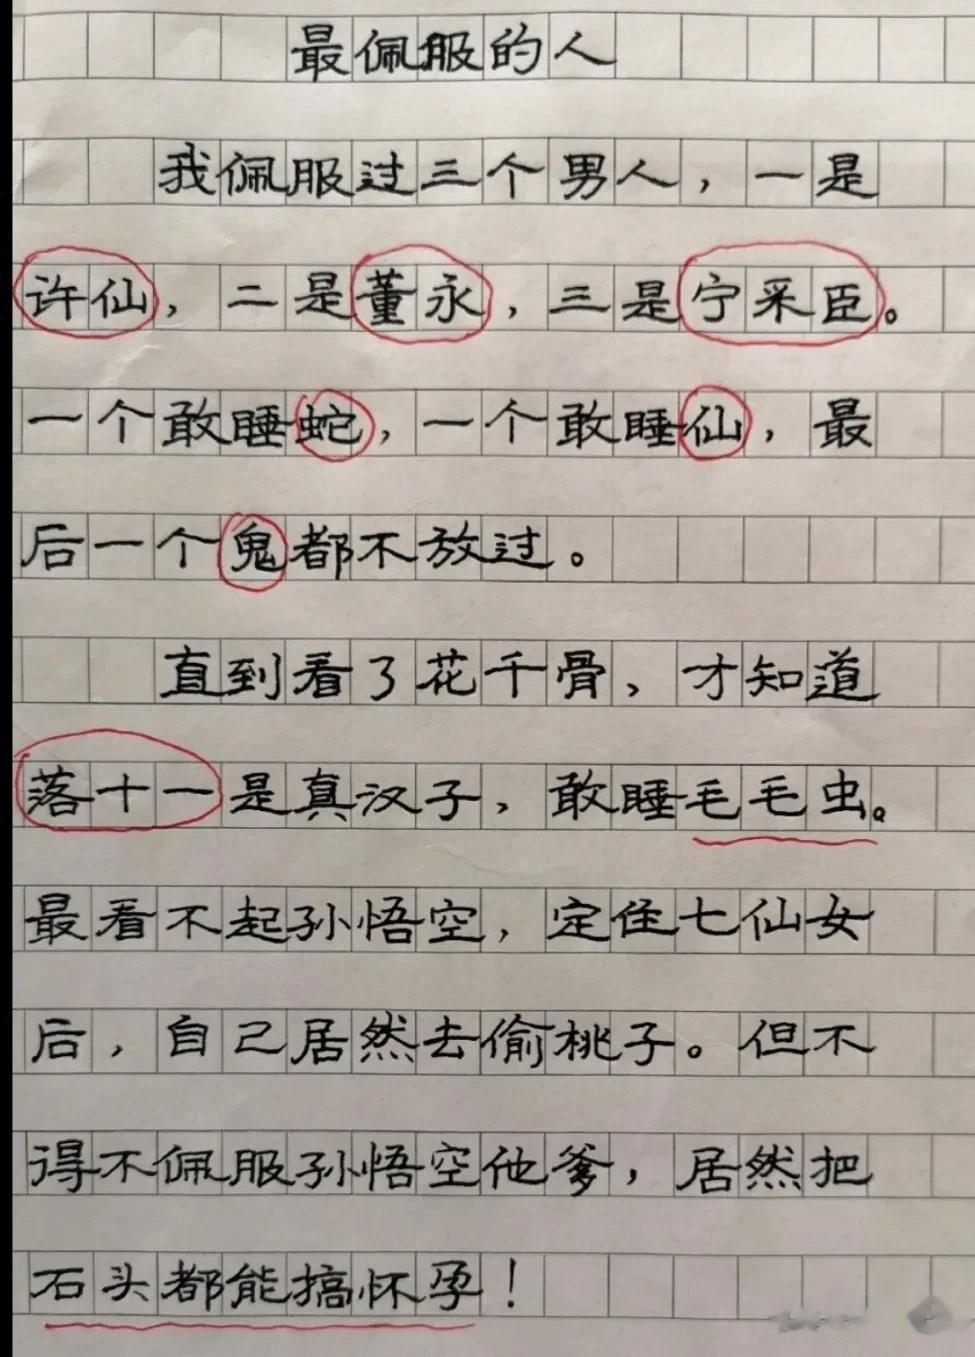 最佩服的人
我佩服过三个男人，一是
许仙，二是董永，三是宁采臣。
一个敢睡蛇，一个敢睡仙，最
后一个鬼都不放过。
直到看了花千骨，才知道
落十一是真汉子，敢睡毛毛虫。
最看不起孙悟空，定住七仙女
后，自己居然去偷桃子。但不
得不佩服孙悟空他爹，居然把
石头都能搞怀孕！